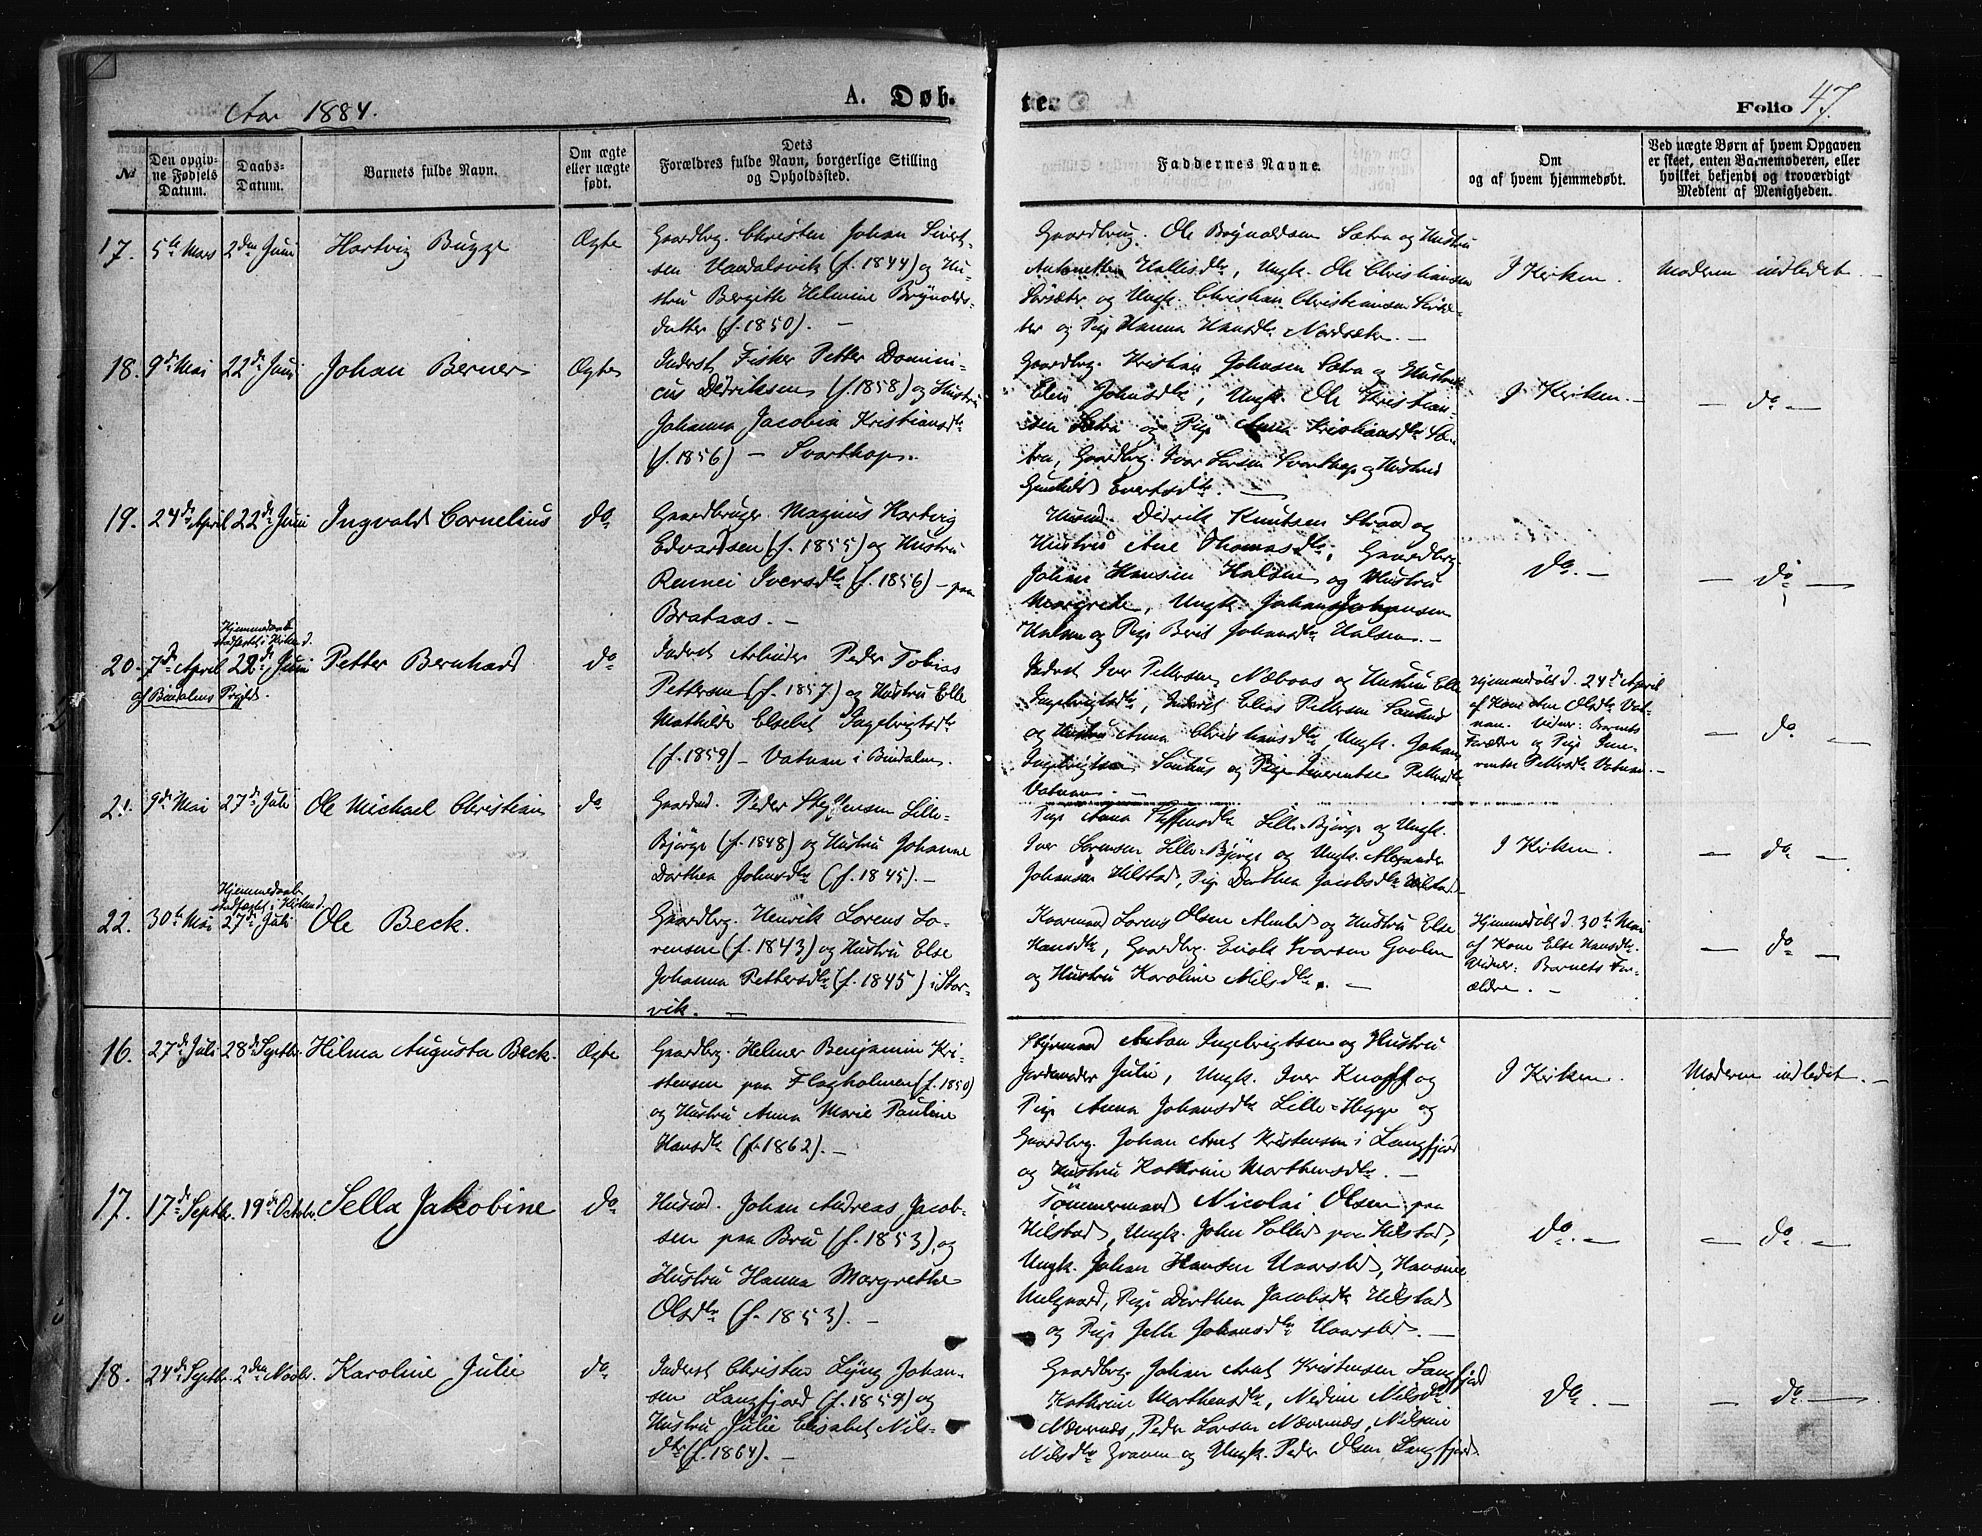 Aar 1884.
A. Døb-
te.
Folio 47.
No
Den opgiv-
ne Fødsels
Datum.
Daabs-
Datum.
Barnets fulde Navn.
Om ægte
eller uægte
født.
Dets
Forældres fulde Navn, borgerlige Stilling
og Opholdssted.
Faddernes Navne.
Om
og af hvem hjemmedøbt.
Ved uægte Børn af hvem Opgaven
er skeet, enten Barnemoderen, eller
hvilket bekjendt og troværdigt
Medlem af Menigheden.
17. 5te Mars 2den Juni Hartvig Bugge Ægte
Gaardbrg. Christen Johan Sivert-
sen Vandalsvik (f. 1844) og Hu-
stru Bergitte Helmine Brynolds-
datter (f. 1850). —
Gaardbrug. Ole Brynoldsen Sætra og Hustru
Antonette Hallisdtr, Ungk. Ole Christiansen
Sørsæter og Ungk. Christian Christiansen Sørsæ-
ter og Pige Hanna Hansdtr Nordsæter. —
I Kirken.
Moderen indledet. —
18. 9de Mai 22de Juni Johan Berner Ægte
Inderst Fisker Petter Domini-
cus Didriksen (f. 1858) og Hustru
Johanna Jacobia Kristiansdtr
(f. 1856) — Svarthop. —
Gaardbrg. Kristian Johnsen Sætra og Hustru
Elen Johnsdtr, Ungk. Ole Kristian-
sen Sætra og Pige Anna Kristiansdtr Sæ-
tra, Gaardbrg. Ivar Larsen Svarthop og Hustru
Gunhild Evertsdtr. —
I Kirken. —
— do —
19. 24de April 22de Juni Ingvald Cornelius do
Gaardbruger Magnus Hartvig
Edvardsen (f. 1855) og Hustru
Rennei Iversdtr (f. 1856) — paa
Brataas. —
Husmd. Didrik Knutsen Strand og
Hustru Ane Thomasdtr, Gaardbrg.
Johan Hansen Halsen og Hustru
Margrete, Ungk. Johan Johansen
Halsen og Pige Berit Johansdtr Halsen. —
do. —
— do —
Hjemmedaab
stadfæstet i Kirken d.
20. 7de April 22de Juni Petter Bernhard do
af Bindalens Prgjld.
Inderst Arbeider Peder Tobias
Pettersen (f. 1857) og Hustru Elle
Mathilde Elsebet Ingebrigtsdtr
(f. 1859) — Vatnan i Bindalen.
Inderst Iver Pettersen Næbaas og Hustru Elle
Ingebrigtsdtr, Inderst Elias Pettersen
og Hustru Anna Christiansdtr, Ungk. Johan
Ingebrigtsen og Pige Inerentse Pettersdtr
Vatnan. —
Hjemmedøbt d. 24de April
af Kone Ane Olsdtr Vat-
nan. Vidner: Barnets
Forældre og Pige Ine-
rentse Pettersdtr Vatnan. —
— do —
21. 9de Mai 27de Juli Ole Michael Christian do
Gaardmd. Peder Steffensen Lille-
Bjørge (f. 1848) og Hustru Johanne
Dorthea Johnsdtr (f. 1845). —
Pige Anna Steffensdtr Lille-Bjørge og Ungk.
Iver Lorensen Lille-Bjørge og Ungk. Alexander
Johansen Hilstad, Pige Dorthea Jacobsdtr Hilstad.
I Kirken.
— do —
Hjemmedaab
stadfæstet i Kirken d.
22. 30te Mai 27de Juli Ole Beck.
Gaardbrg. Henrik Lorens Lo-
rensen (f. 1843) og Hustru Else
Johanna Pettersdtr (f. 1845) i Stor-
vik. —
Kaarmand Lorens Olsen Almlid og Hustru Else
Hansdtr, Gaardbrg. Enok Ivarsen Gaolen
og Hustru Karoline Nilsdtr. —
Hjemmedøbt d. 30te Mai
af Kone Else Hansdtr.
Vidner: Barnets For-
ældre. —
— do —
16. 27de Juli 28de Septbr. Hilma Augusta Beck. Ægte
Gaardbrg. Helmer Benjamin Kri-
stensen paa Flagholmen (f. 1850)
og Hustru Anna Marie Pauline
Hansdtr (f. 1862). —
Styrmand Anton Ingebrigtsen og Hustru
Jordemoder Julie, Ungk. Iver Knoff og
Pige Anna Johansdtr Lille-Hegge og
Gaardbrg. Johan Arnt Kristensen i Langfjord
og Hustru Kathrine Marthensdtr. —
I Kirken.
Moderen indledet. —
17. 17de Septbr. 19de Octobr. Sella Jakobine do
Husmd. Johan Andreas Jacob-
sen paa Bru (f. 1853), og
Hustru Hanna Margrethe
Olsdtr (f. 1853). —
Tømmermand Nicolai Olsen paa
Hilstad, Ungk. John Solled paa Hilstad,
Ungk. Johan Hansen Vaarsted, Hansine
Pige Dorthea Jacobsdtr Hilstad
og Pige Johansdtr Vaarsted. —
do. —
— do. —
18. 24de Septbr. 2den Novbr. Karoline Julie do
Inderst Christen Lyng Johan-
sen Langfjord (f. 1859) og
Hustru Julie Elisabet Nils-
dtr (f. 1864). —
Gaardbrg. Johan Arnt Kristensen Langfjord
Kathrine Marthensdtr, Nedine Nilsdtr
Nævernæs, Peder Larsen Nævernæs, Nilsine
Nilsdtr og Ungk. Peder Olsen Langfjord.
do. —
— do —